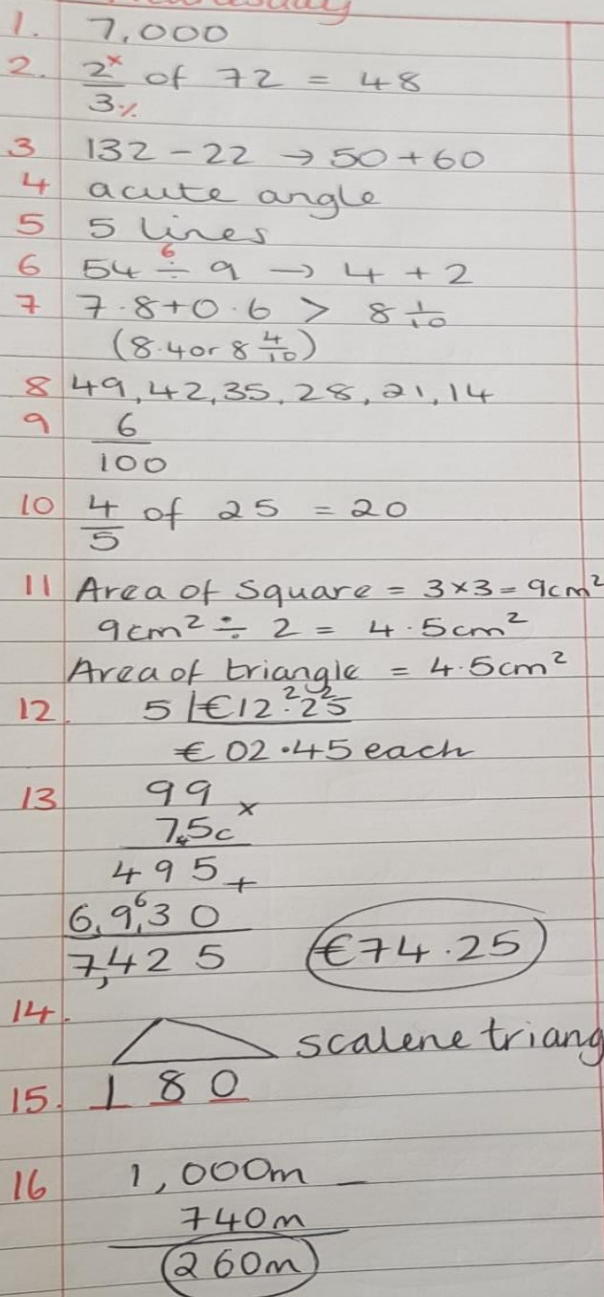 1. 7,000
2. 2/3 of 72 = 48
3 132 - 22 → 50 + 60
4 acute angle
5 5 lines
6 54 ÷ 9 → 4 + 2
7 7.8 + 0.6 > 8 1/10
(8.4 or 8 4/10)
8 49, 42, 35, 28, 21, 14
9 6/100
10 4/5 of 25 = 20
11 Area of Square = 3 × 3 = 9cm²
9cm² ÷ 2 = 4.5cm²
Area of triangle = 4.5cm²
12. 5 | €12.²2²5
€02.45 each
13 99 ×
75c
495 +
6,930
7,425 €74.25
14. scalene triang
15. 180
16 1,000m -
740m
260m